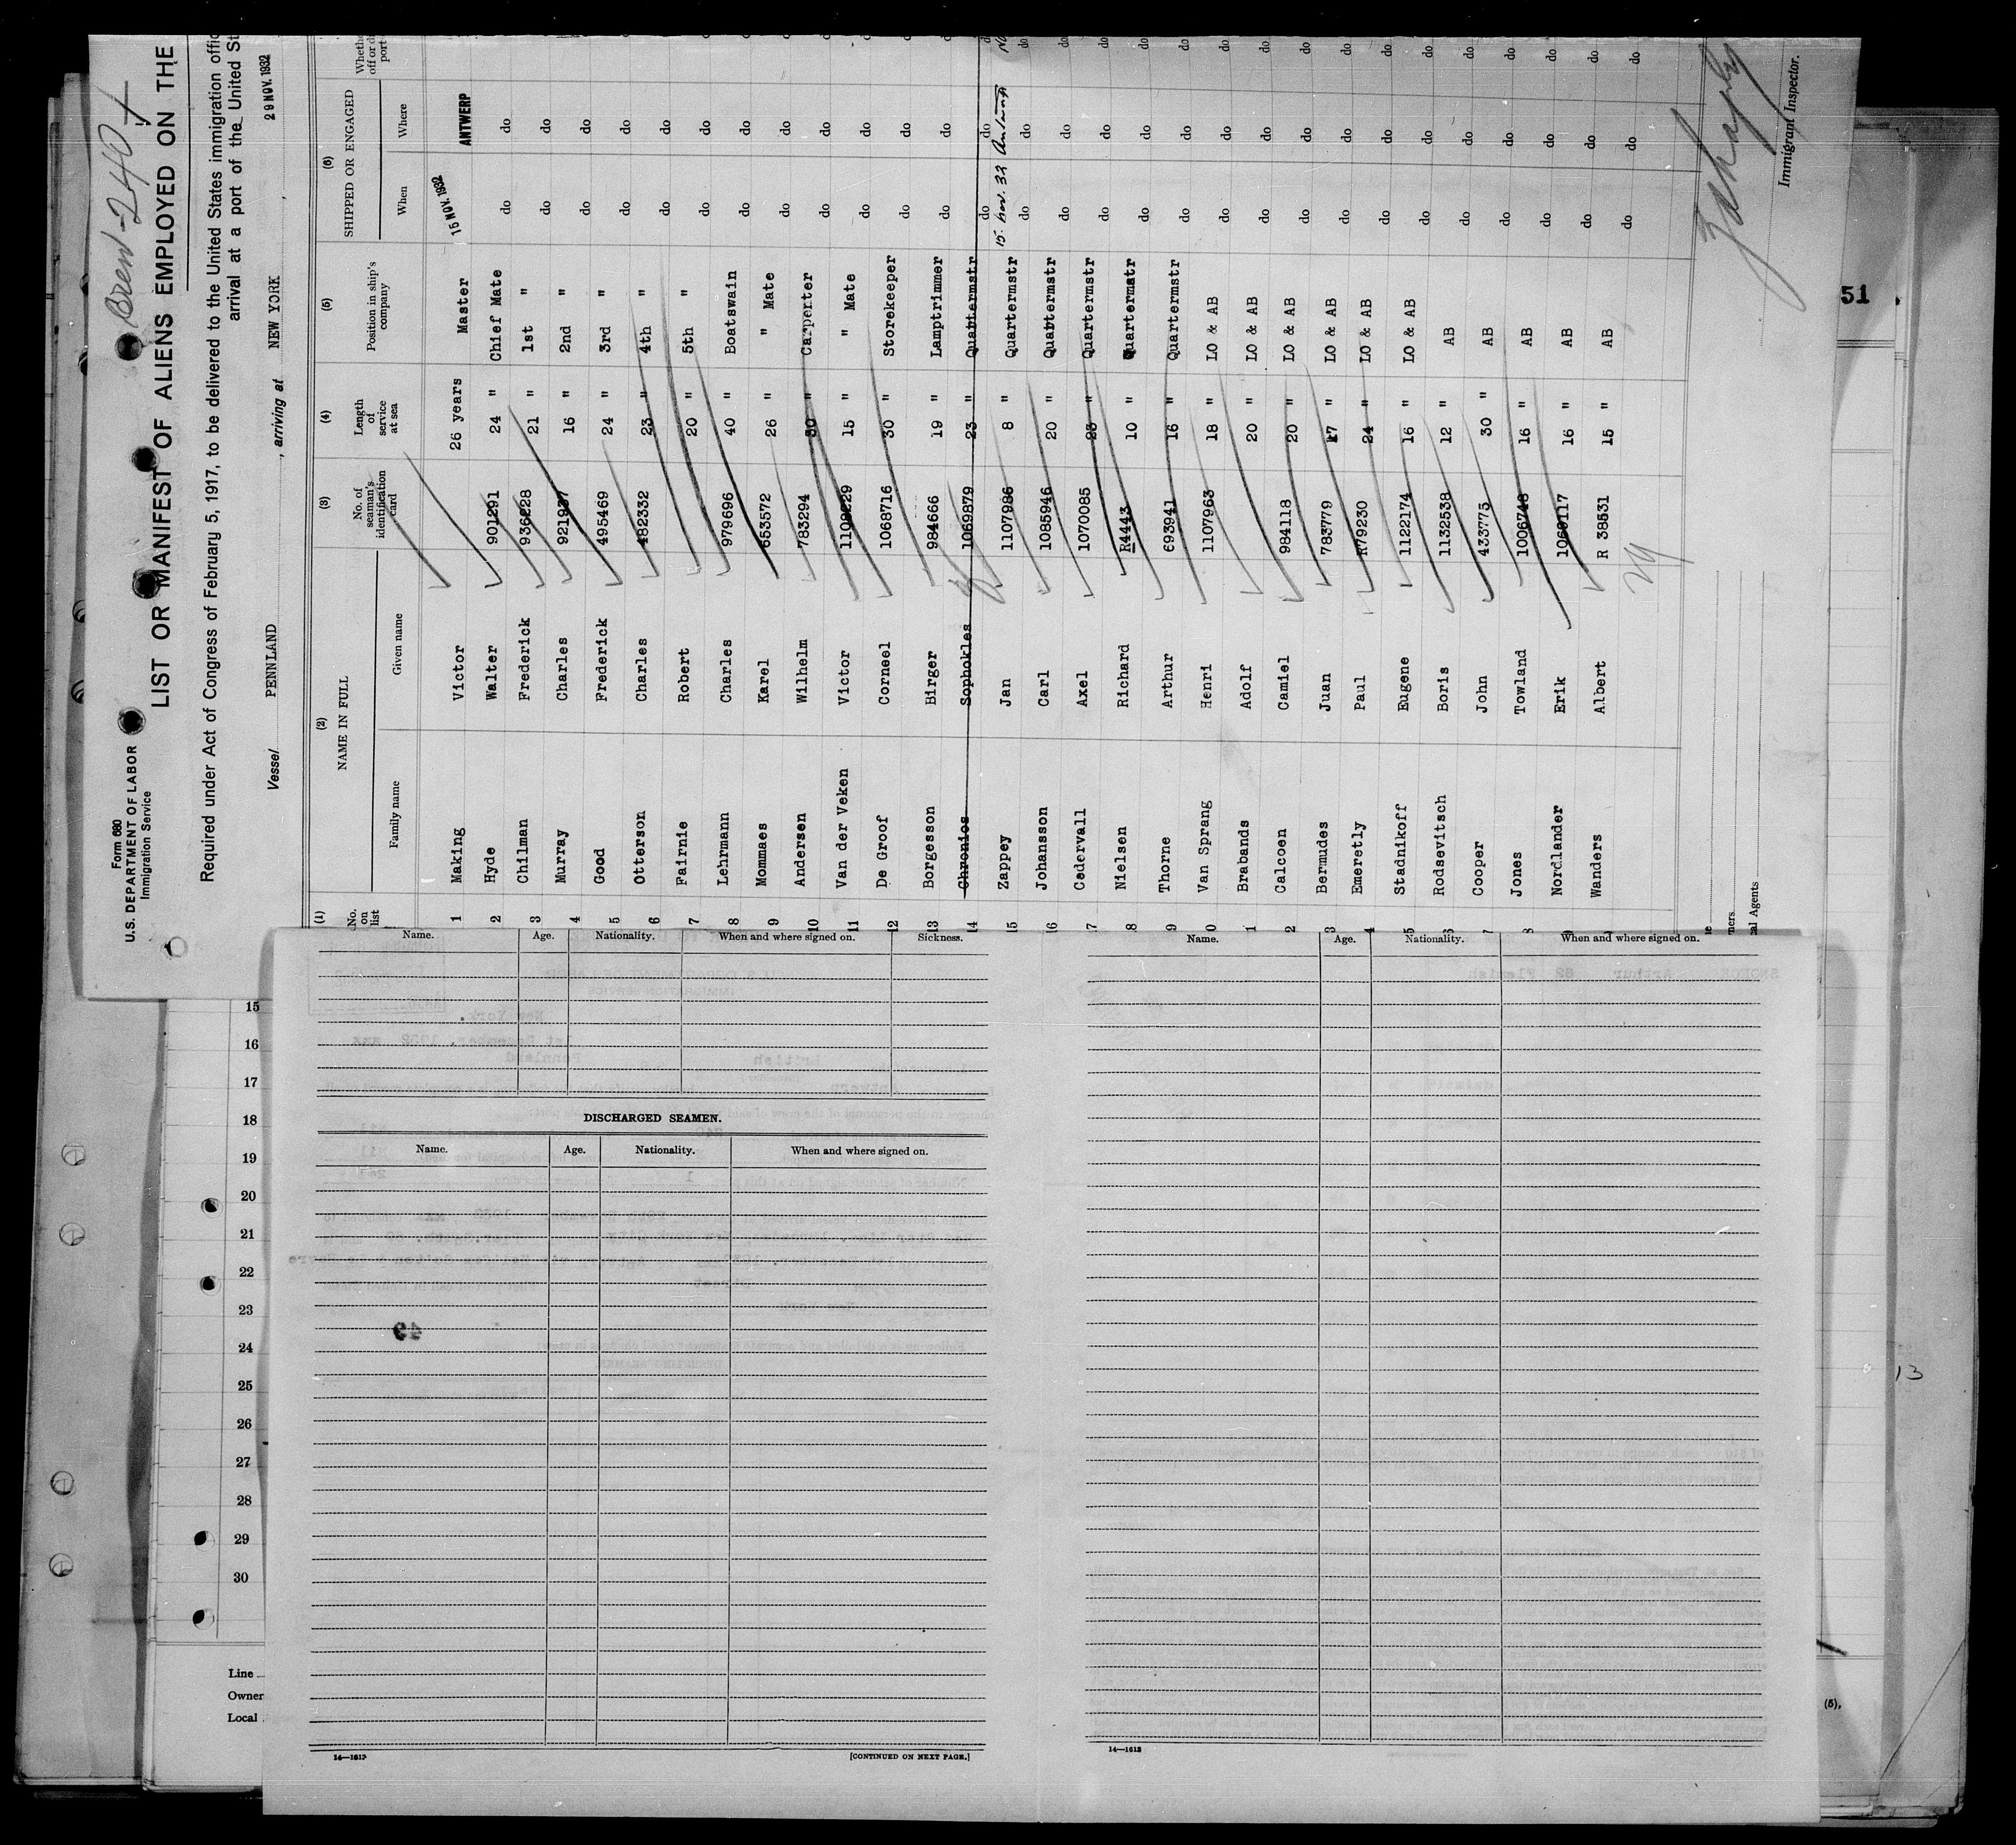 Form 680
U.S. DEPARTMENT OF LABOR
Immigration Service
LIST OR MANIFEST OF ALIENS EMPLOYED ON THE
Required under Act of Congress of February 5, 1917, to be delivered to the United States immigration
arrival at a port of the United
Vessel PENNLAND, arriving at NEW YORK, 29 NOV. 1932
(1) (2) (3) (4) (5) (6)
No. on list NAME IN FULL No. of seaman's identification card Length of service at sea Position in ship's company SHIPPED OR ENGAGED
Family name Given name When Where
1 Making Victor 26 years Master 15 NOV. 1932 ANTWERP
2 Hyde Walter 901291 24 " Chief Mate do do
3 Chilman Frederick 936828 21 " 1st " do do
4 Murray Charles 921937 16 " 2nd " do do
5 Good Frederick 495469 24 " 3rd " do do
6 Otterson Charles 492332 23 " 4th " do do
7 Fairnie Robert 20 " 5th " do do
8 Lehrmann Charles 979696 40 " Boatswain do do
9 Mommaes Karel 653572 26 " " Mate do do
10 Andersen Wilhelm 783294 30 " Carpenter do do
11 Van der Veken Victor 1109229 15 " " Mate do do
12 De Groof Corneel 1068716 30 " Storekeeper do do
13 Borgesson Birger 984666 19 " Lamptrimmer do do
14 Chronios Sophokles 1069879 23 " Quartermstr do do
15 Zappey Jan 1107986 8 " Quartermstr 15. Nov. 32 Antwerp do do
16 Johansson Carl 1085946 20 " Quartermstr do do
7 Cedervall Axel 1070085 23 " Quartermstr do do
8 Nielsen Richard R4443 10 " Quartermstr do do
9 Thorne Arthur 693941 16 " Quartermstr do do
0 Van Sprang Henri 1107963 18 " LO & AB do do
1 Brabands Adolf 20 " LO & AB do do
2 Calcoen Camiel 984118 20 " LO & AB do do
3 Bermudes Juan 783779 17 " LO & AB do do
4 Emeretly Paul R79230 24 " LO & AB do do
5 Stadnikoff Eugene 1122174 16 " LO & AB do do
6 Rodsevitsch Boris 1132538 12 " AB do do
7 Cooper John 433775 30 " AB do do
8 Jones Towland 1006748 16 " AB do do
9 Nordlander Erik 1060117 16 " AB do do
Wanders Albert R 38531 15 " AB do do
Immigrant Inspector.
Agents
51
Name. Age. Nationality. When and where signed on. Sickness.
DISCHARGED SEAMEN.
Name. Age. Nationality. When and where signed on.
14—1613
[CONTINUED ON NEXT PAGE.]
Name. Age. Nationality. When and where signed on.
14—1613
15
16
17
18
19
20
21
22
23
24
25
26
27
28
29
30
Line
Owner
Local
(5),
13